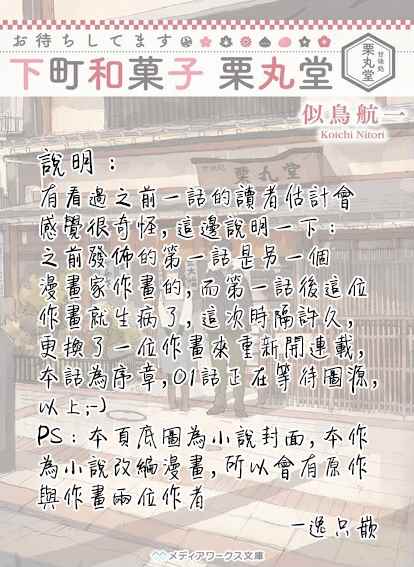 お待ちしてます
下町和菓子 栗丸堂
甘味処
栗丸堂
似鳥航一
Koichi Nitori
栗丸堂
說明：
有看過之前一話的讀者估計會
感覺很奇怪，這邊說明一下：
之前發佈的第一話是另一個
漫畫家作畫的，而第一話後這位
作畫就生病了，這次時隔許久，
更換了一位作畫來重新開連載，
本話為序章，01話正在等待圖源，
以上;-)
PS：本頁底圖為小說封面，本作
為小說改編漫畫，所以會有原作
與作畫兩位作者
一逸只歡
メディアワークス文庫